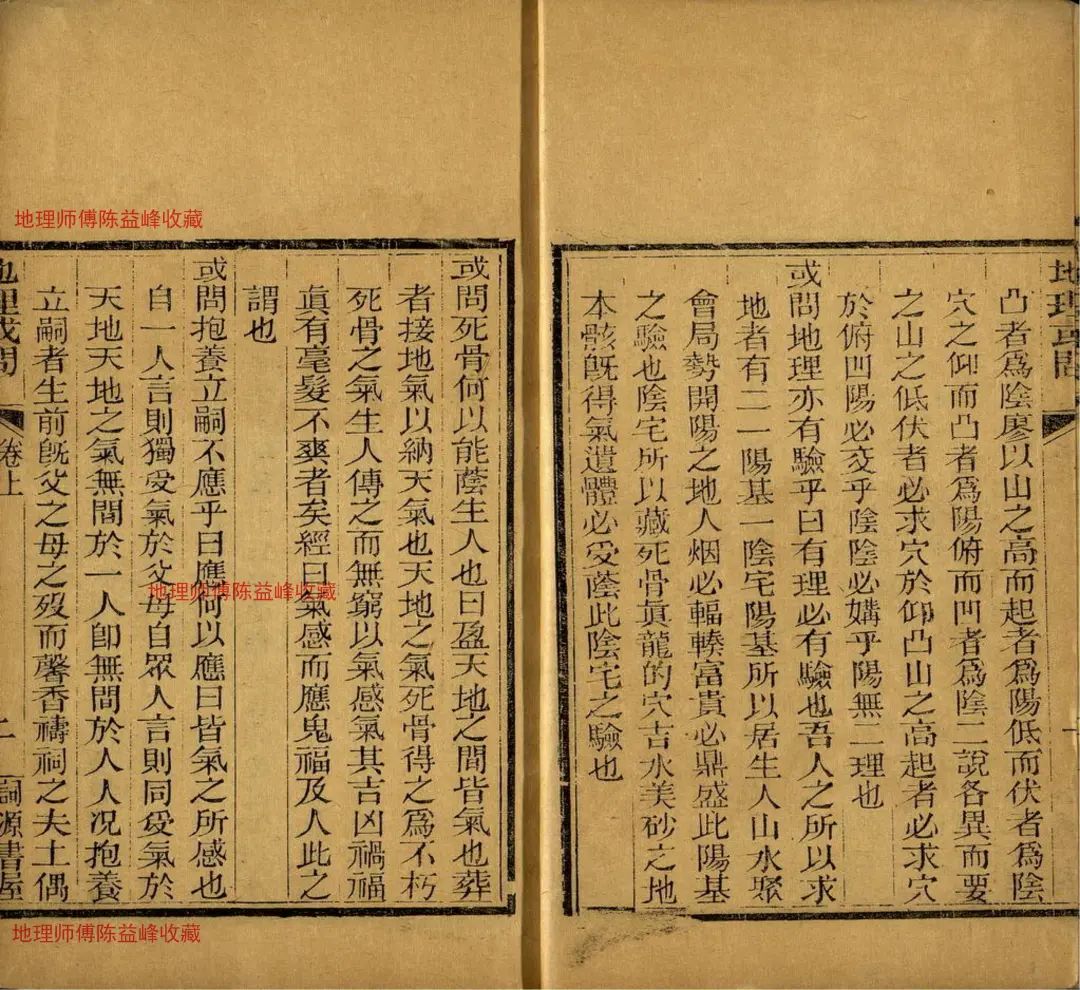 地理或問
凸者爲陰廖以山之高而起者爲陽低而伏者爲陰
穴之仰而凸者爲陽俯而凹者爲陰二說各異而要
之山之低伏者必求穴於仰凸山之高起者必求穴
於俯凹陽必交乎陰陰必媾乎陽無二理也
或問地理亦有驗乎曰有理必有驗也吾人之所以求
地者有二一陽基一陰宅陽基所以居生人山水聚
會局勢開陽之地人烟必輻輳富貴必鼎盛此陽基
之驗也陰宅所以藏死骨眞龍的穴吉水美砂之地
本骸旣得氣遺體必受蔭此陰宅之驗也
或問死骨何以能蔭生人也曰盈天地之間皆氣也葬
者接地氣以納天氣也天地之氣死骨得之爲不朽
死骨之氣生人傳之而無窮以氣感氣其吉凶禍福
眞有毫髮不爽者矣經曰氣感而應鬼福及人此之
謂也
或問抱養立嗣不應乎曰應何以應曰皆氣之所感也
自一人言則獨受氣於父母自眾人言則同受氣於
天地天地之氣無間於一人卽無間於人人况抱養
立嗣者生前旣父之母之歿而馨香禱祠之夫土偶
地理或問 卷上 二 詞源書屋
地理师傅陈益峰收藏
地理师傅陈益峰收藏
地理师傅陈益峰收藏